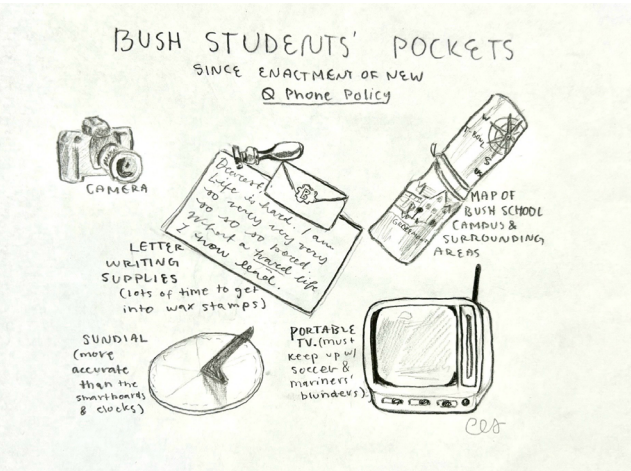 BUSH STUDENTS' POCKETS
SINCE ENACTMENT OF NEW
Ø Phone Policy
CAMERA
Dearest,
Life is hard. I am
so very very very
so so so bored.
Without a
I now lead.
B
LETTER
WRITING
SUPPLIES
(lots of time to get
into wax stamps)
N
S
MAP OF
BUSH SCHOOL
CAMPUS &
SURROUNDING
AREAS
SUNDIAL
(more
accurate
than the
smartboards
& clocks)
PORTABLE
TV. (must
keep up w/
soccer &
mariners'
blunders)